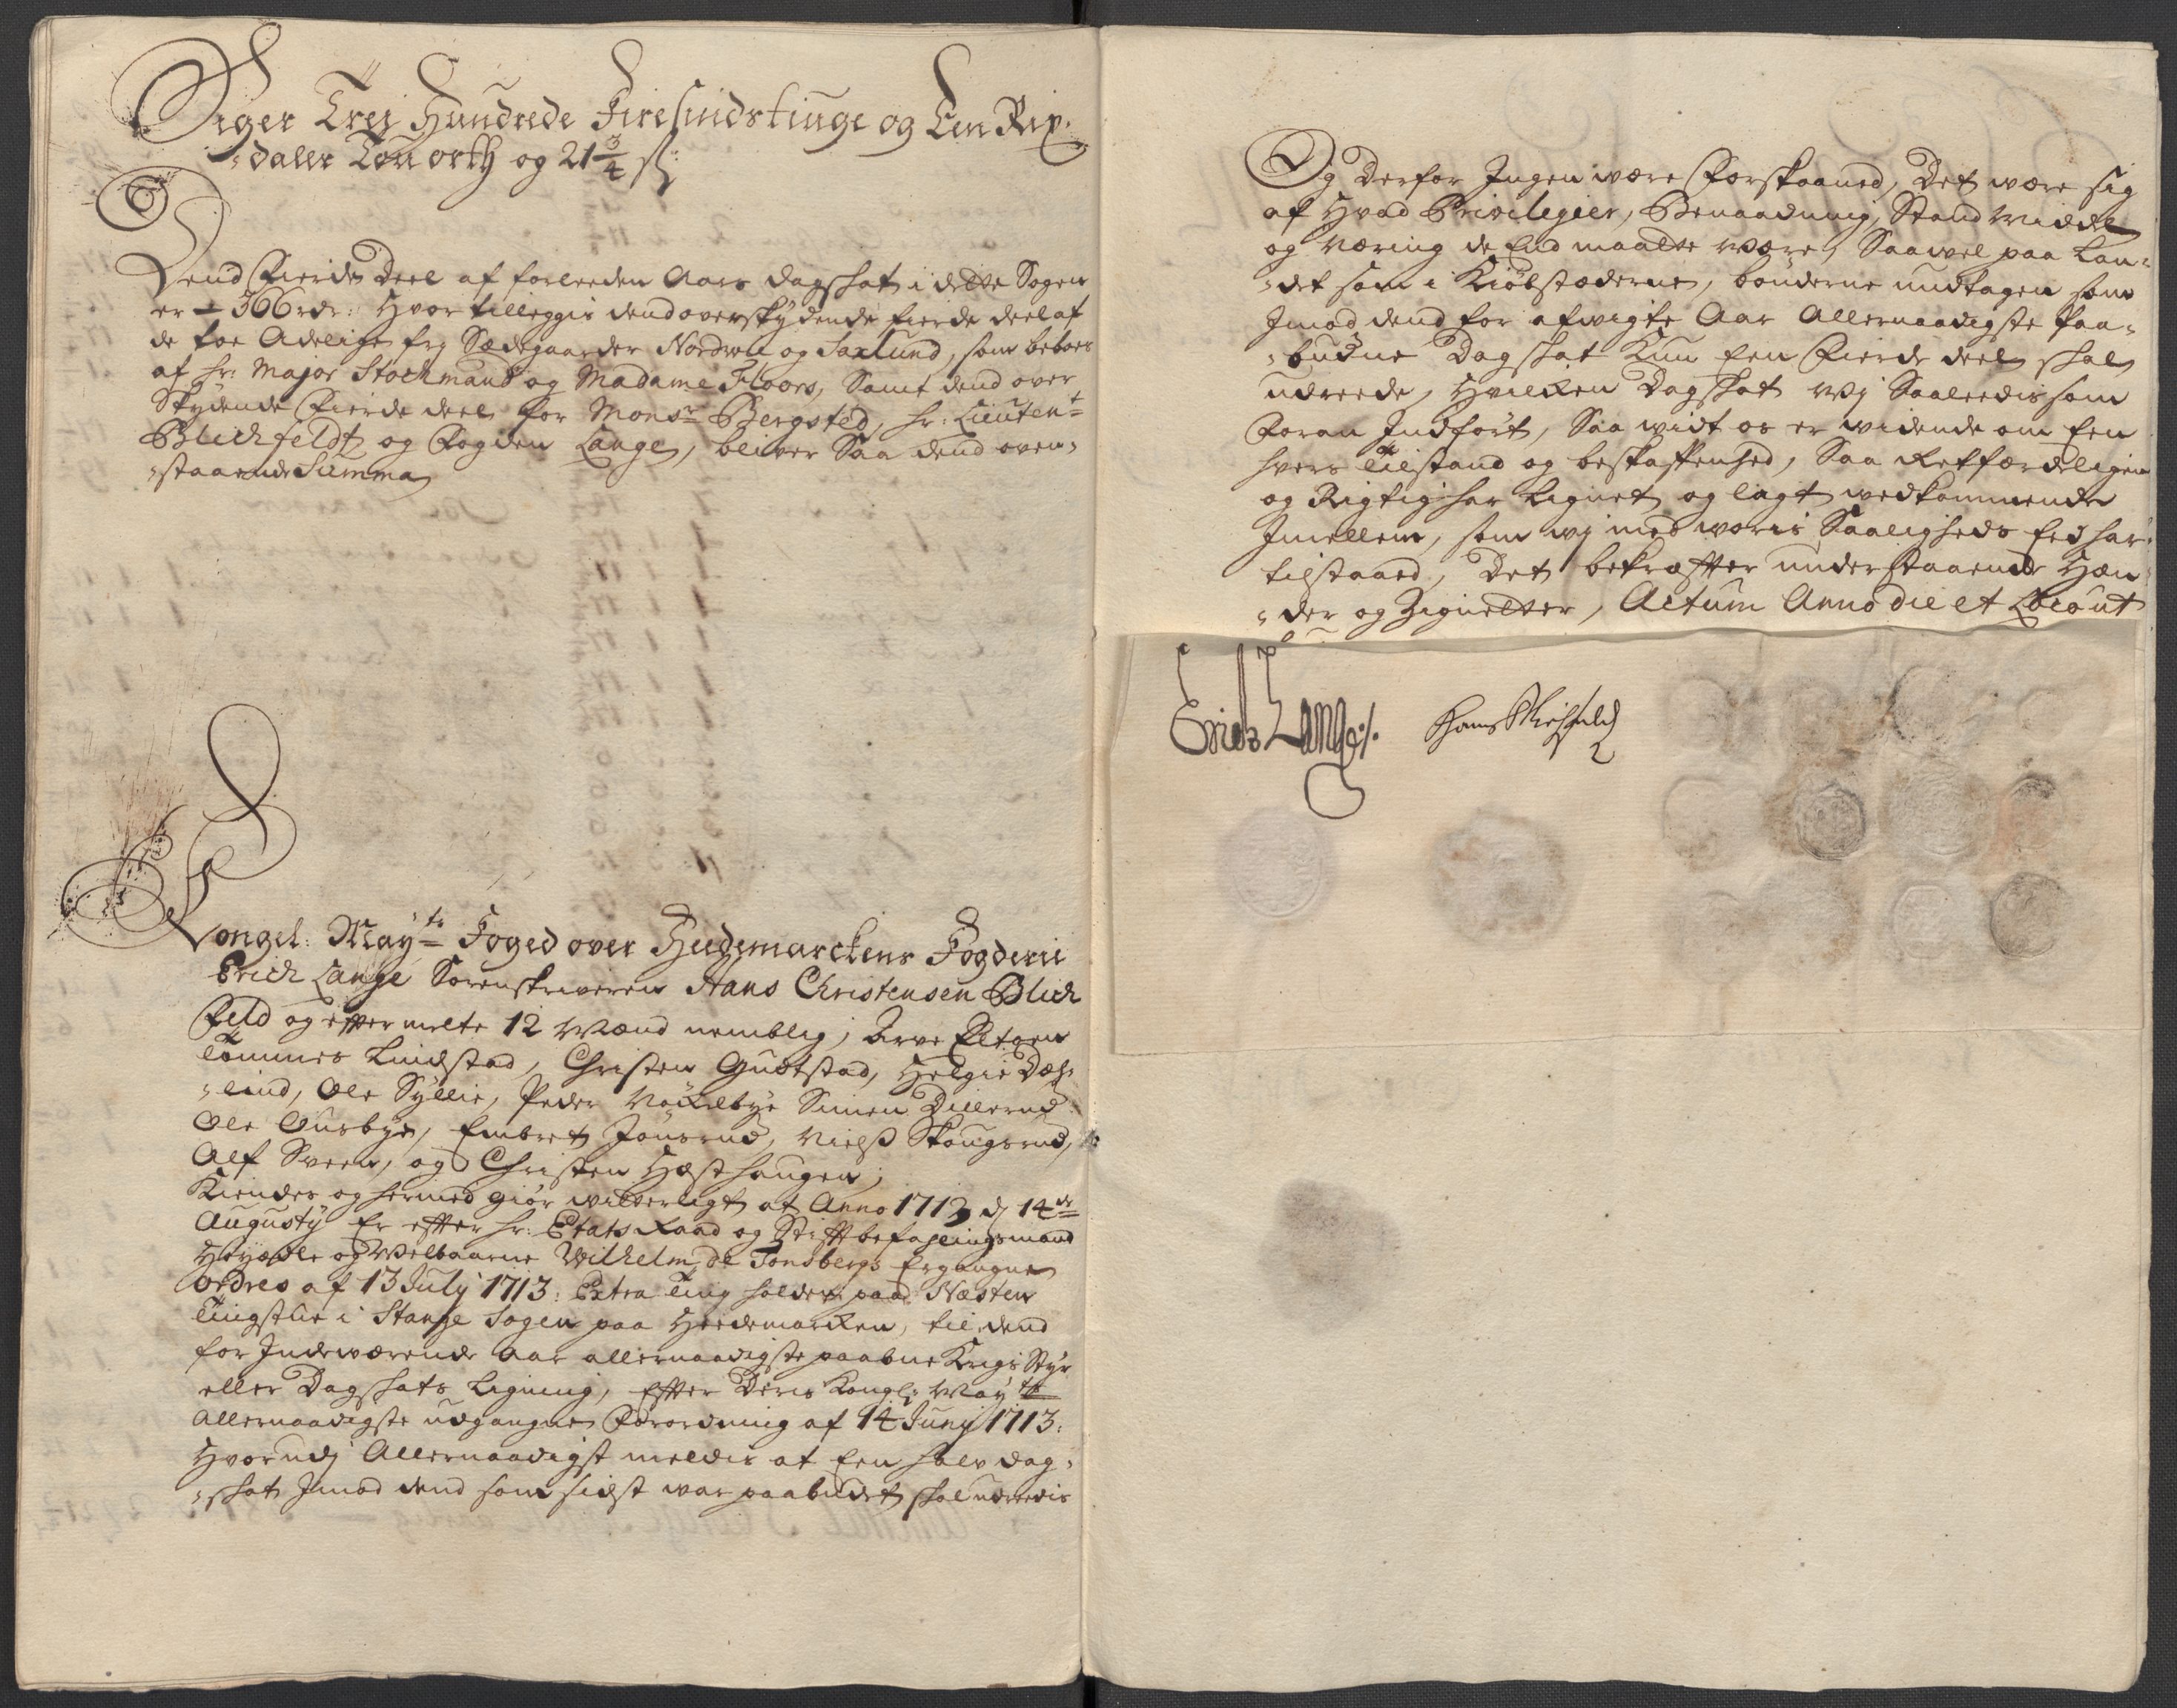 Siger Trej Hundrede Firesindstiuge og Een Rix-
-daler Tou orth og 21 3/4 s:
Dend Fierde Deel af forleeden Aars dagskat i dette Sogen
er - 366 rdr: Hvor tilleggis dend overskydende fierde deel af
de toe Adelige frj Sædegaarder Nordvie og Saxlund, som beboes
af hr: Major Stochmand og Madame Floors, Samt dend over
Skydende Fierde deel for Monsr Bergsted, hr: Lieutent
Blichfeldt og Fogden Lange, bliver Saa dend oven-
-staaende Summa
Kongel: Mayts Foged over Hedemarckens Fogderie
Erich Lange Sorenskriveren Hans Christensen Blich
Feld og effter melte 12 Mænd nemblig, Arve
Tommes Lindstad, Christen Gudtstad, Helgie Dæh-
-lind, Ole Syllie, Peder Nøkelbye Simen Dillerud
Ole Ousbye, Embret Jonsrud, Nielß Skougsrud,
Alf Sveen, og Christen Hæsthaugen,
Kiendes og hermed giør witterligt at Anno 1713 d 14de
Augusty Er effter hr: Etats Raad og Stifftbefalingsmand
Høyædle og Velbaarne Wilhelm de Tonsbergs Ergangne
ordres af 13 July 1713: Extra Ting holden paa Næsten
Tingstue i Stange Sogen paa Heedemarken, til dend
for Indeværende Aar allernaadigste paabne Krigs Styr
eller Dagskats Ligning, Effter Deris Kongl: May tts
Allernaadigste udgangne Forordning af 14 Juny 1713:
Hvorudj Allernaadigst meldis at Een halv dag-
-skat Imod dend som sidst war paabudet skal udreedis
Og Derfor Ingen være Forskaaned, Det være sig
af Hvad Privilegier, Benaadning, Stand Middel
og Næring de End maatte Være, Saavel paa Lan-
-det som i Kiøbstæderne, bønderne undtagen som
Imod dend for afwigte Aar Allernaadigste Paa-
-budne Dagskat Kun Een Fierde deel skal
udreede, Hvilken Dagskat Wj Saaleedis som
Foran Indført, Saa widt os er widende om Een
hvers Tilstand og beskaffenhed, Saa Retfærdeligen
og Rigtig har Lignet og lagt wedkommende
Imellem, som wj med woris Saaligheds Eed har
tilstaaed, Det bekræffter understaaende Hæn-
-der og Zignetter, Actum Anno die et Loco ut
Erich Lange
Hans Blichfeld